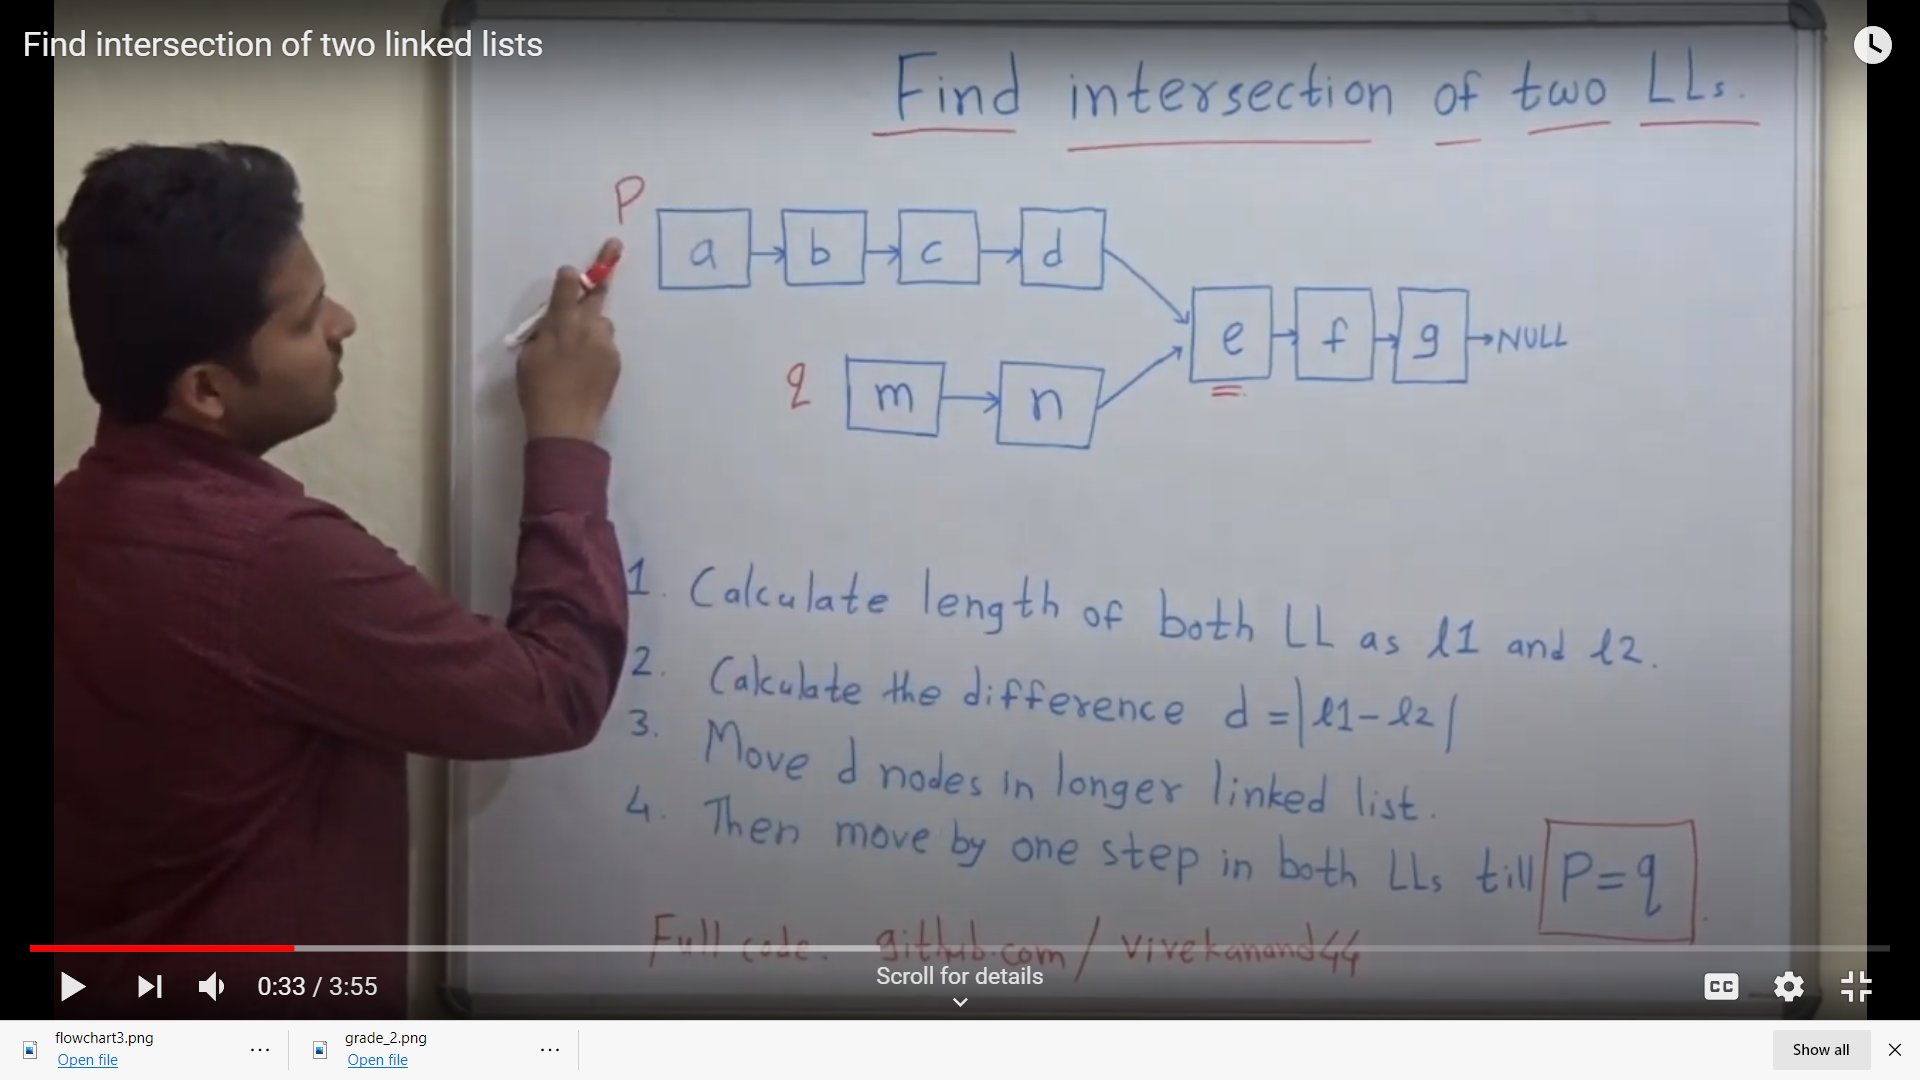 Find intersection of two linked lists
Find intersection of two LLs.
P
a b c d
e f g NULL
q m n
1. Calculate length of both LL as l1 and l2.
2. Calculate the difference d = |l1-l2|
3. Move d nodes in longer linked list.
4. Then move by one step in both LLs till P=q
Full code. github.com/vivekanand44
Scroll for details
0:33 / 3:55
CC
flowchart3.png
Open file
grade_2.png
Open file
Show all